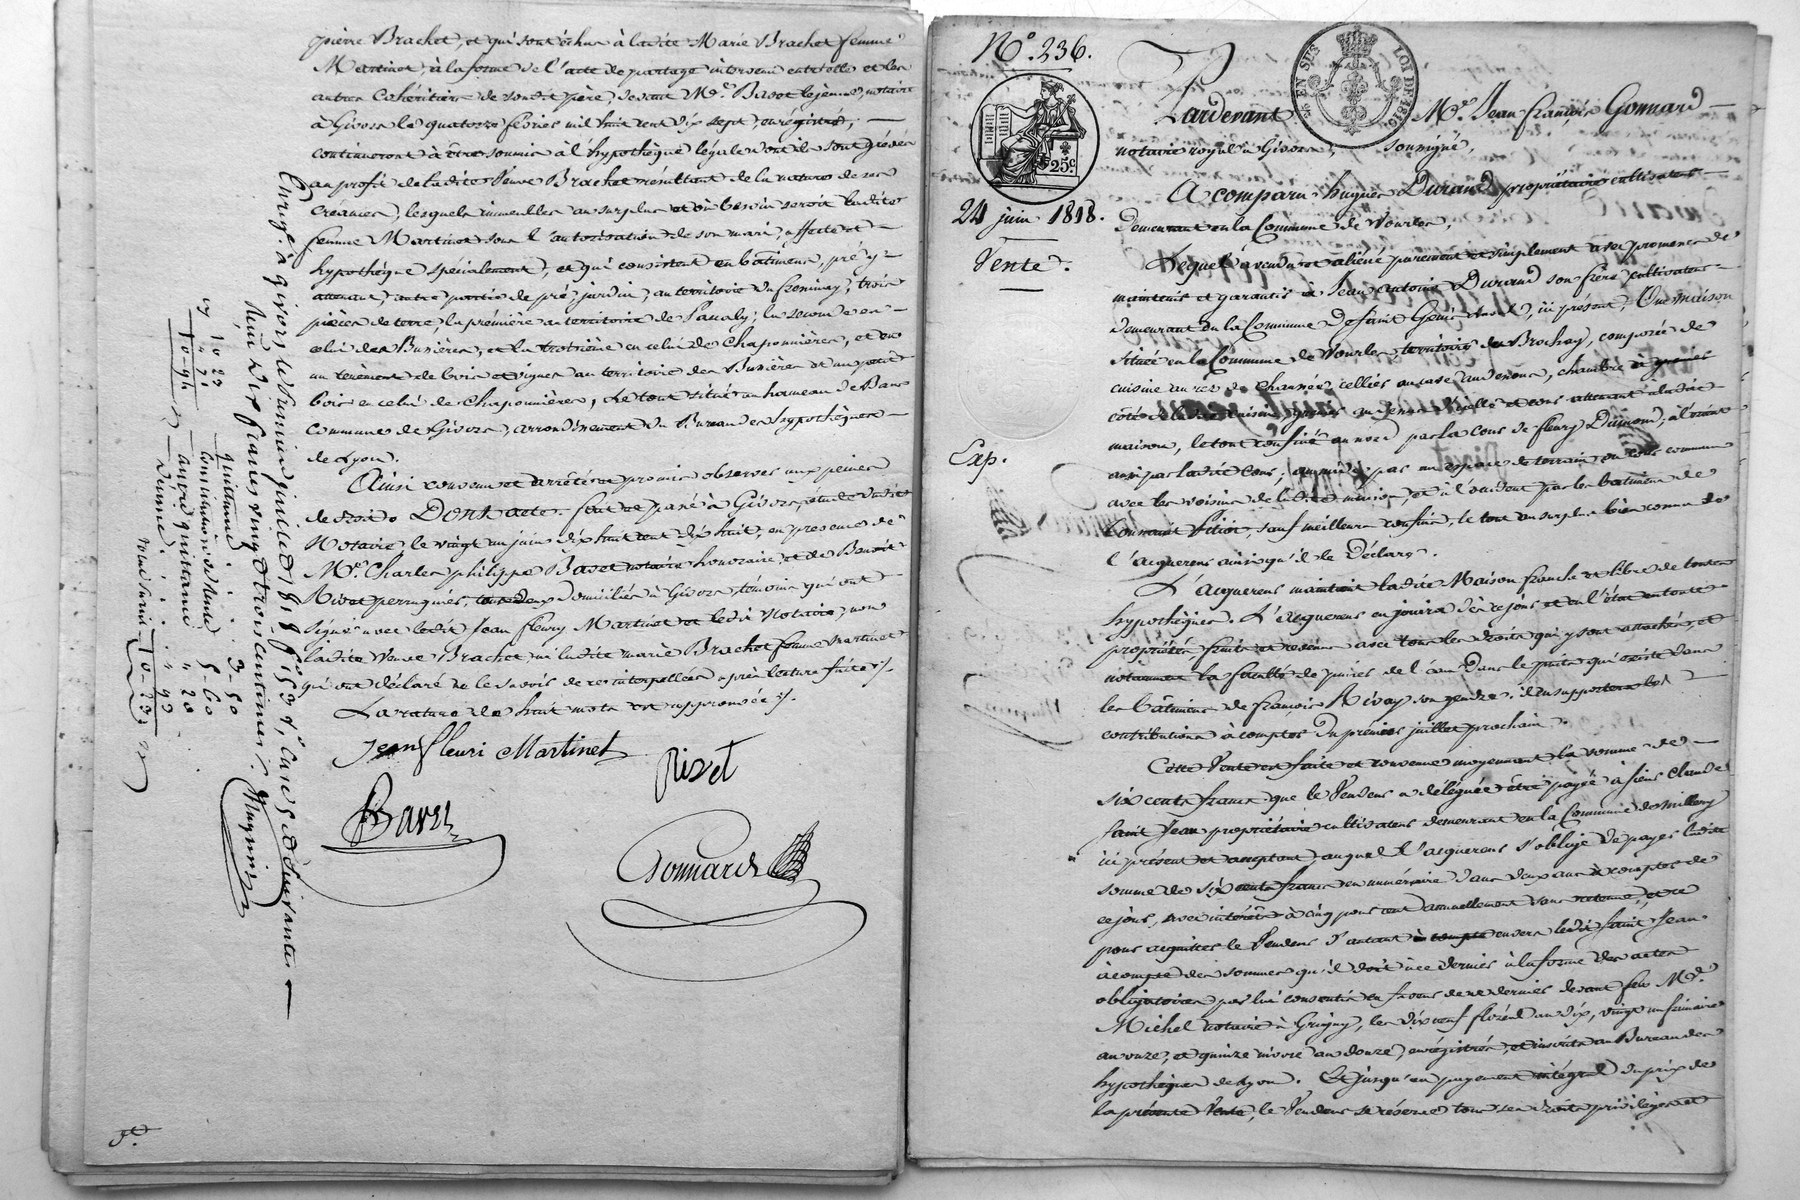 pierre Brachet, et qui sont échus à ladite Marie Brachet femme
Martinet, à la forme de l'acte de partage intervenu entr'elle et les
autres Cohéritiers de sondit père, devant Me. Baset le jeune, notaire
à Givors le quatorze février mil huit cent dix sept, enregistré, —
continueront à être soumis à l'hypothèque légale dont ils sont grévés
au profit de ladite Veuve Brachet résultant de la nature de ses
Créances, lesquels immeubles au surplus et en besoin seroit ladite
femme Martinet sous l'autorisation de son mari, affecte et —
hypothèque spécialement, et qui consistent en bâtimens, pré y —
attenant, autre partie de pré, jardin, au territoire du freminay, trois
pièces de terre la première au territoire de ; la seconde en —
celui des Busières, et la troisième en celui de Chaponnières, et en
un tènement de bois et vignes au territoire des Busières et un petit
bois en celui de Chaponnières, Le tout situé au hameau de Bans
commune de Givors, arrondissement du Bureau des hypothèques —
de Lyon.
Ainsi convenu et arrêté et promis observer aux peines
de droit. DONT acte. fait et passé à Givors, étude dudit
Notaire, le vingt un juin dix huit cent dix huit, en présence de
Me. Charles philippe Baset notaire honoraire, et de Benoit
Rivet perruquier, tous deux Domiciliés à Givors témoins qui ont
signé avec ledit Jean fleury Martinet et ledit Notaire, non
ladite veuve Brachet, ni ladite marie Brachet femme Martinet
qui ont déclaré ne le savoir de ce interpellées après lecture faite ./.
La rature de huit mots est approuvée ./.
Jean fleuri Martinet
Rivet
Baset
Gonnard
Enregt. à givors le premier juillet 1818, fo. 53 Vo. Cases 5 et suivantes —
Reçu dix francs vingt trois centimes.
Magnin
quittance . . . . 3-50
5-60
autre quittance " 20
Dixme . . . . " 93
10-23
10 23
" 71
10 94
No. 236.
25c.
EN SUS
LOI DE 1816
24 juin 1818.
Vente.
Exp.
Pardevant Me. Jean françois Gonnard —
notaire royal à Givors, soussigné,
A comparu hugues Durand propriétaire cultivateur —
demeurant en la Commune de Vourles,
Lequel a vendu et aliéné purement et simplement avec promesse de
maintenir et garantir à Jean Antoine Durand son frère, cultivateur —
demeurant en la Commune de Saint Genis Laval, ici présent, Une maison
située en la Commune de Vourles, territoire du Brochay, composée de
cuisine au rez de chaussée, cellier ou cave au dessous, chambre à
côté de ladite cuisine, grenier au dessus d'elle et cour attenant à ladite
maison, le tout confiné au nord par la cour de fleury Dumond, à l'orient
aussi par ladite cour; au midi par un espace de terrain ou cour commune
avec les voisins de ladite maison, et à l'occident par les bâtimens de
, sauf meilleurs confins, le tout au surplus bien connu de
l'acquéreur ainsi qu'il le déclare.
L'acquéreur ladite Maison franche et libre de toutes
hypothèques. L'acquéreur en jouira dès ce jour et en l'état en toute
propriété, fruits et revenus avec tous les droits qui y sont attachés, et
notamment la faculté de puiser de l'eau dans le puits qui existe dans
les bâtimens de françois Rivoy son gendre. il en supportera les —
contributions à compter du premier juillet prochain.
Cette Vente est faite et convenue moyennant la somme de —
six cents francs que le Vendeur a déléguée être payée à sieur Claude
Saint Jean propriétaire cultivateur demeurant en la Commune de Millery
ici présent et acceptant, auquel l'acquéreur s'oblige de payer ladite
somme de six cents francs en numéraire dans deux ans à compter de
ce jour, avec intérêts à cinq pour cent annuellement sans retenue, et ce
pour acquitter le Vendeur d'autant envers ledit Saint Jean
à compte des sommes qu'il doit à ce dernier à la forme des actes
obligatoires par lui consentis en faveur de ce dernier devant feu Me.
Michel notaire à Grigny, les dix neuf floréal an dix, vingt un frimaire
an onze, et quinze nivose an douze, enregistrés, et inscrits au Bureau des
hypothèques de Lyon. Et jusqu'au payement intégral du prix de
la présente Vente, le Vendeur se réserve tous ses droits, privilèges et